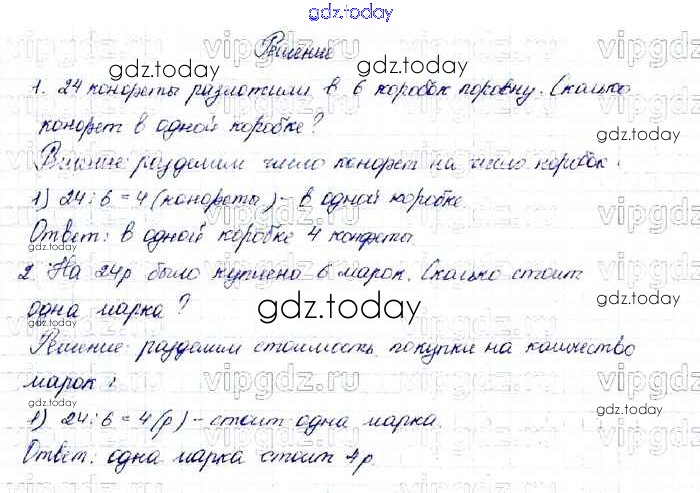 gdz.today
Решение
1. 24 конфеты разложили в 6 коробок поровну. Сколько
конфет в одной коробке?
Решение: разделим число конфет на число коробок:
1) 24:6=4 (конфеты) - в одной коробке.
Ответ: в одной коробке 4 конфеты.
2. На 24р было куплено 6 марок. Сколько стоит
одна марка?
Решение: разделим стоимость покупки на количество
марок:
1) 24:6=4(р) - стоит одна марка.
Ответ: одна марка стоит 4р.
gdz.today
gdz.today
gdz.today
gdz.today
gdz.today
gdz.today
gdz.today
vipgdz.ru